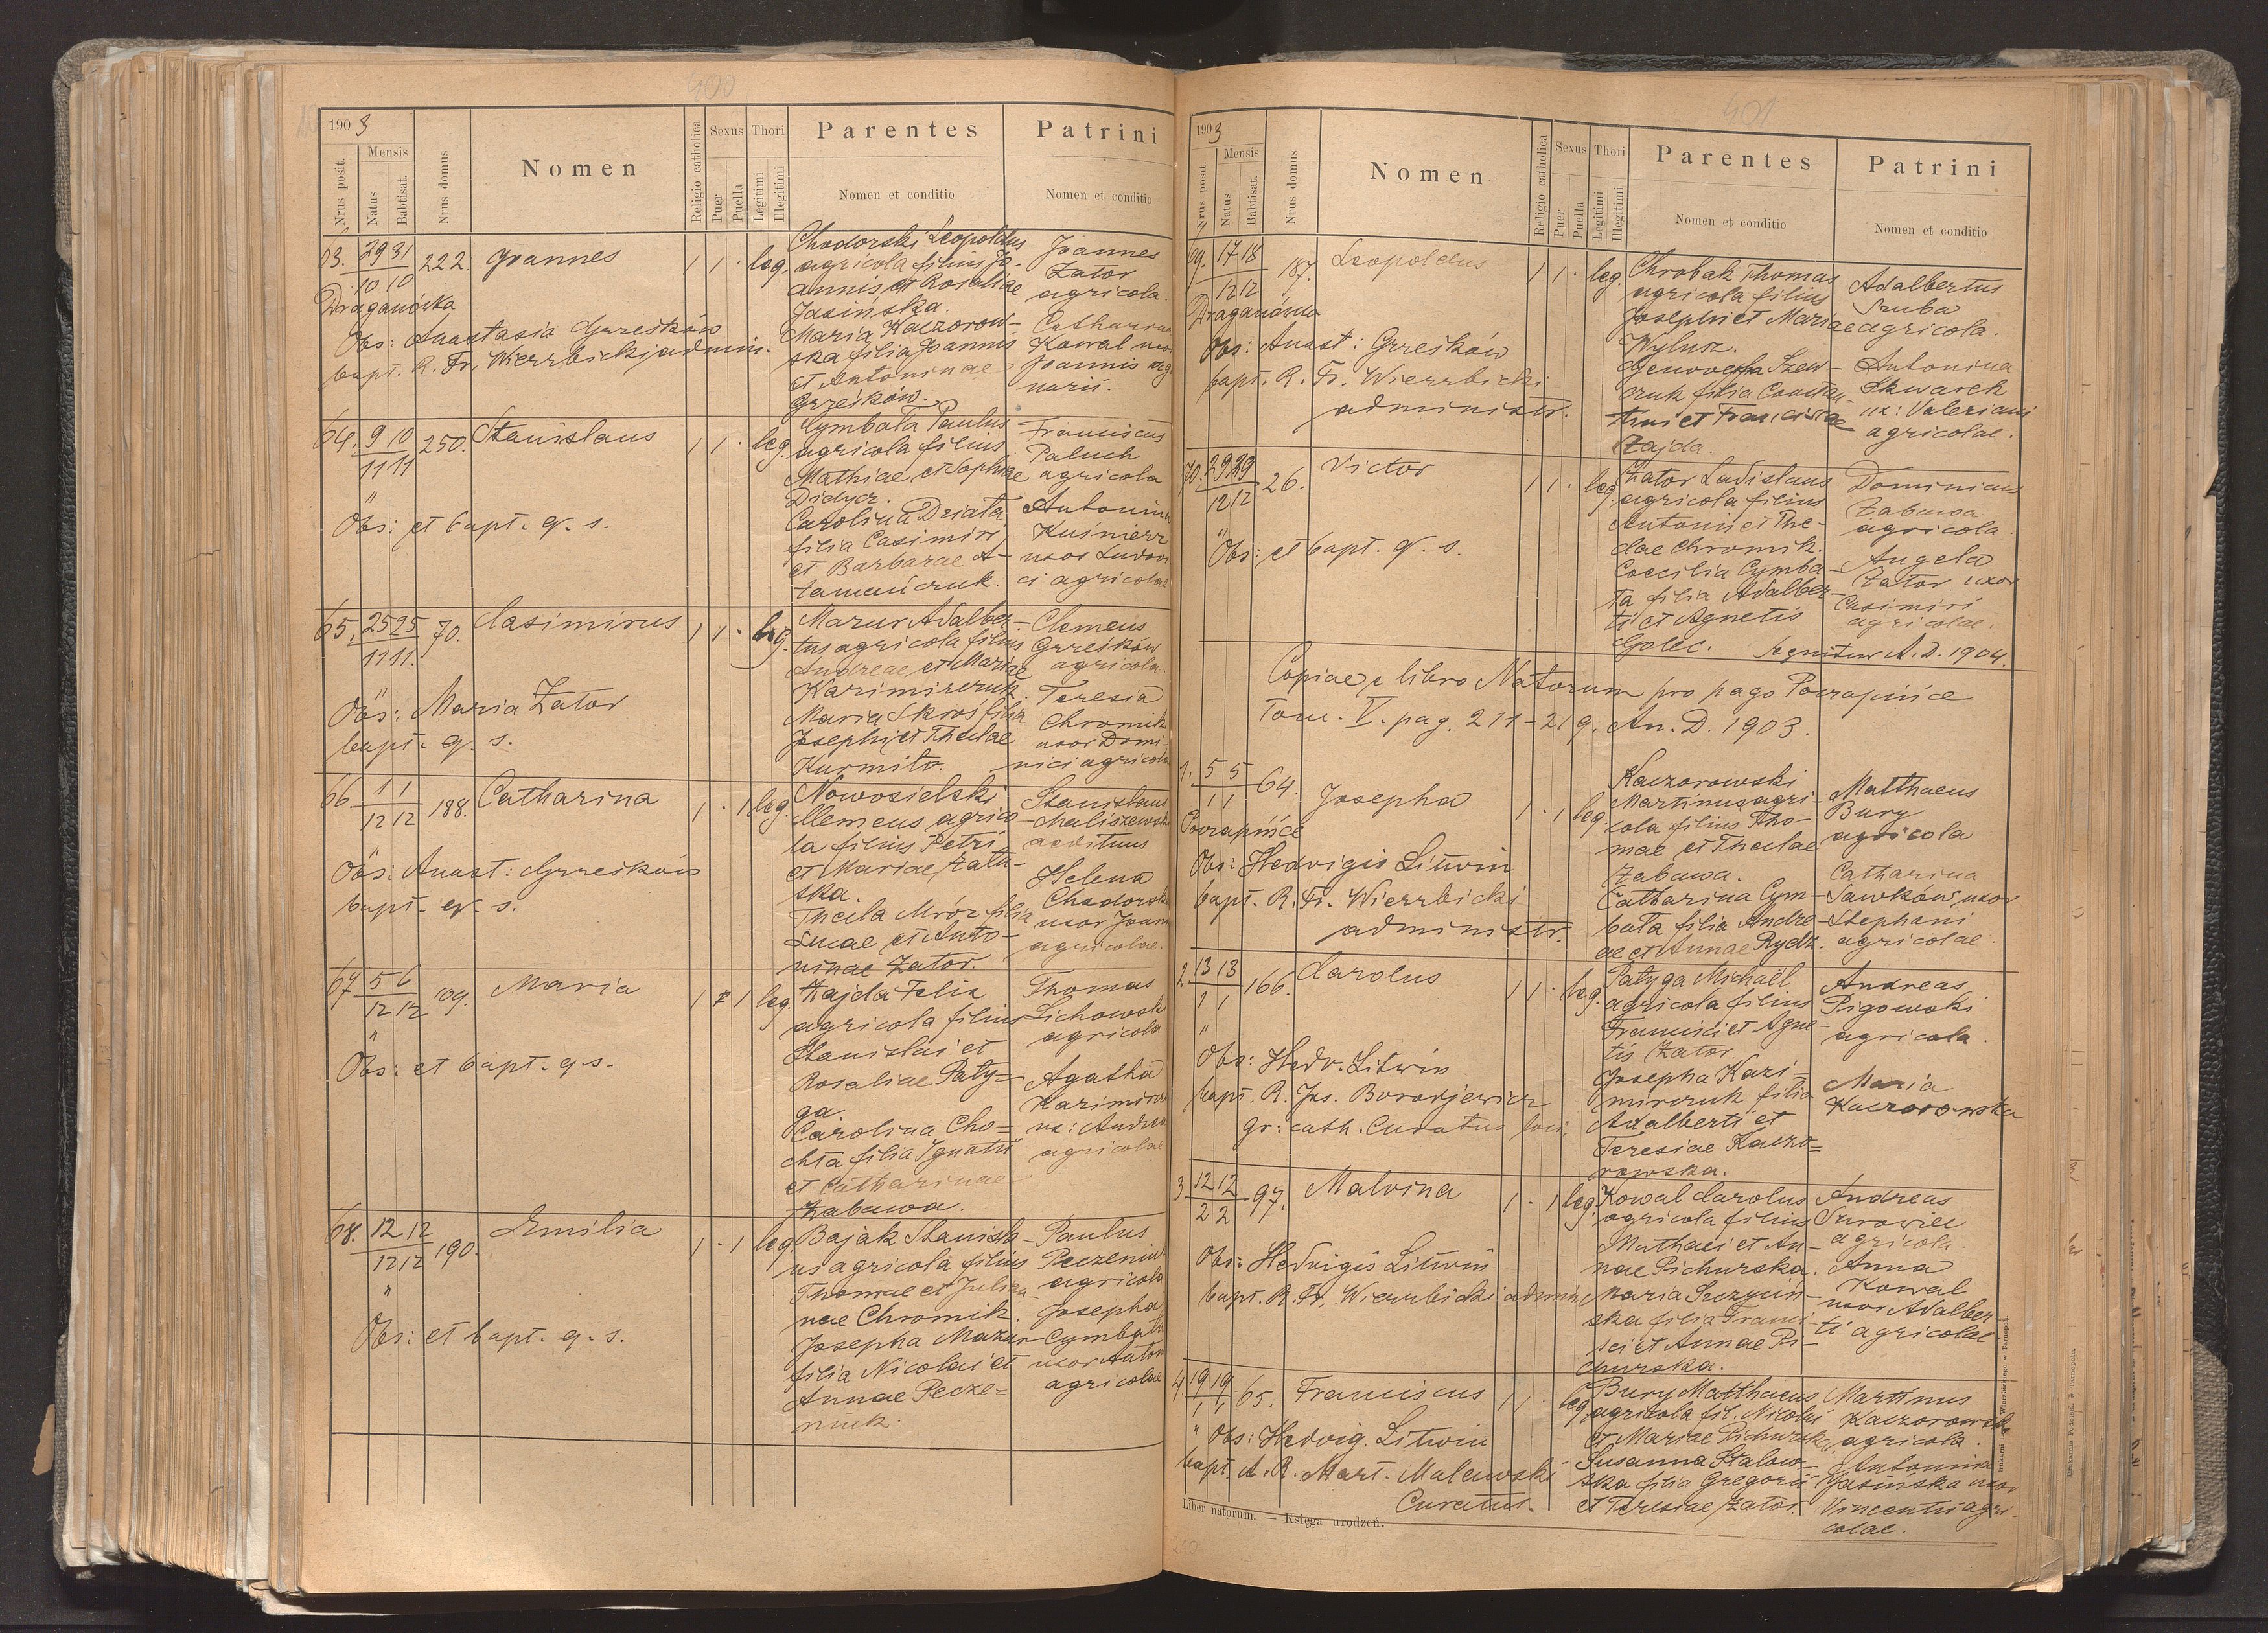 400
1903
Nrus posit.
Mensis
Natus
Babtisat.
Nrus domus
Nomen
Religio catholica
Sexus
Puer
Puella
Thori
Legitimi
Illegitimi
Parentes
Nomen et conditio
Patrini
Nomen et conditio
63. 29 31 222. Joannes 1 1 · leg.
10 10
Draganówka
Obs: Anastasia Grześków
bapt. R. Fr. Wierzbicki admin.
Chodorski Leopoldus
agricola filius Jo-
annis et Rosaliae
Jasińska.
Maria Kaczorow-
ska filia Joannis
et Antoninae
Grześków.
Joannes
Zator
agricola.
Catharina
Kowal uxor
Joannis
64. 9 10 250. Stanislaus 1 1 · leg.
11 11
"
Obs: et bapt. q. s.
Cymbała Paulus
agricola filius
Mathiae et Sophiae
Didycz.
Carolina Dziata
filia Casimiri
et Barbarae A-
tamańczuk.
Franciscus
Paluch
agricola
Antonina
Kuśnierz
uxor Ludovi
ci agricolae
65. 25 25 70. Casimirus 1 1 · leg.
11 11.
"
Obs: Maria Zator
bapt. q. s.
Mazur Adalber-
tus agricola filius
Andreae et Mariae
Kazimirczuk.
Maria Skros filia
Josephi et Theclae
Kurmita.
Clemens
Grześków
agricola.
Teresia
Chromik
uxor Domi-
nici agricolae
66. 1 1 188. Catharina 1 · 1 leg.
12 12
"
Obs: Anast: Grześków
bapt. q. s.
Nowosielski
Clemens agrico-
la filius Petri
et Mariae Zału-
ska.
Thecla Mróz filia
Lucae et Anto-
ninae Zator.
Stanislaus
Maliszewski
aedituus
Helena
Chodorska
uxor Joann
agricolae.
67. 5 6 109. Maria 1 · 1 leg.
12 12
"
Obs: et bapt. q. s.
Zajda Felix
agricola filius
Stanislai et
Rosaliae Paty-
ga.
Carolina Cho-
chta filia Ignatii
et Catharinae
Zabawa.
Thomas
Lichowski
agricola
Agatha
Kazimircz
ux: Andrea
agricolae
68. 12 12 190. Emilia 1 · 1 leg.
12 12
"
Obs: et bapt. q. s.
Bajak Stanisla-
us agricola filius
Thomae et Julia-
nae Chromik.
Josepha Mazur
filia Nicolai et
Annae Pecze-
niuk.
Paulus
Peczeniuk
agricola
Josepha
Cymbała
uxor Anton
agricolae
401
1903
Nrus posit.
Mensis
Natus
Babtisat.
Nrus domus
Nomen
Religio catholica
Sexus
Puer
Puella
Thori
Legitimi
Illegitimi
Parentes
Nomen et conditio
Patrini
Nomen et conditio
69. 17 18 187. Leopoldus 1 1 · leg.
12 12
Draganówka
Obs: Anast: Grześków
bapt. R. Fr. Wierzbicki
administr.
Chrobak Thomas
agricola filius
Josephi et Mariae
Wylusz.
Genovefa Szew-
czuk filia Constan-
tini et Franciscae
Zajda.
Adalbertus
Sruba
agricola.
Antonina
Skwarek
ux: Valeriani
agricolae.
70. 29 29 26. Victor 1 1 · leg.
12 12
"
Obs: et bapt. q. s.
Zator Ladislaus
agricola filius
Antonii et The-
clae Chromik.
Coecilia Cymba-
ła filia Adalber-
ti et Agnetis
Golec.
Dominicus
Zabawa
agricola.
Angela
Zator uxor
Casimiri
agricolae.
Sequitur A. D. 1904.
Copiae e libro Natorum pro pago Poczapińce
Tom. V. pag. 211-219. An. D. 1903.
1. 5 5 64. Josepha 1 · 1 leg.
1 1
Poczapińce
Obs: Hedvigis Litwin
bapt. R. Fr. Wierzbicki
administr.
Kaczorowski
Martinus agri-
cola filius Tho-
mae et Theclae
Zabawa.
Catharina Cym-
bała filia Andre-
ae et Annae Rydz.
Matthaeus
Bury
agricola
Catharina
Sawków, uxor
Stephani
agricolae.
2. 13 13 166. Carolus 1 1 · leg.
1 1
"
Obs: Hedv. Litwin
bapt. R. Jos. Borodjewicz
gr: cath. Curatus loci
Patyga Michaël
agricola filius
Francisci et Agne-
tis Zator.
Josepha Kazi-
mirczuk filia
Adalberti et
Teresiae Kaczo-
rowska.
Andreas
Pigowski
agricola.
Maria
Kaczorowska
3. 12 12 97. Malvina 1 · 1 leg.
2 2
Obs: Hedvigis Litwin
bapt. R. Fr. Wierzbicki admin.
Kowal Carolus
agricola filius
Mathaei et An-
nae Pichurska.
Maria Szczyciń-
ska filia Franci-
sci et Annae Pi-
churska.
Andreas
Surowiec
agricola.
Anna
Kowal
uxor Adalber-
ti agricolae
4. 19 19 65. Franciscus 1 1 · leg.
1 1
" Obs: Hedvig. Litwin
bapt. A. R. Mart. Malewski
Curatus.
Bury Matthaeus
agricola fil. Nicolai
et Mariae Pichurska.
Susanna Stalow-
ska filia Gregorii
et Teresiae Zator.
Martinus
Kaczorowski
agricola.
Antonina
Jasińska uxor
Vincentii agri-
colae.
Liber natorum. — Księga urodzeń.
210